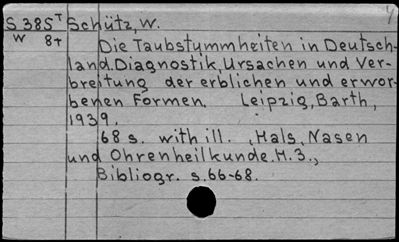 S 385ᵀ Schütz, W.
W 8+ Die Taubstummheiten in Deutsch-
land. Diagnostik, Ursachen und Ver-
breitung der erblichen und erwor-
benen Formen. Leipzig, Barth,
1939.
68 s. with ill. , Hals, Nasen
und Ohrenheilkunde. H.3.,
Bibliogr. s.66-68.